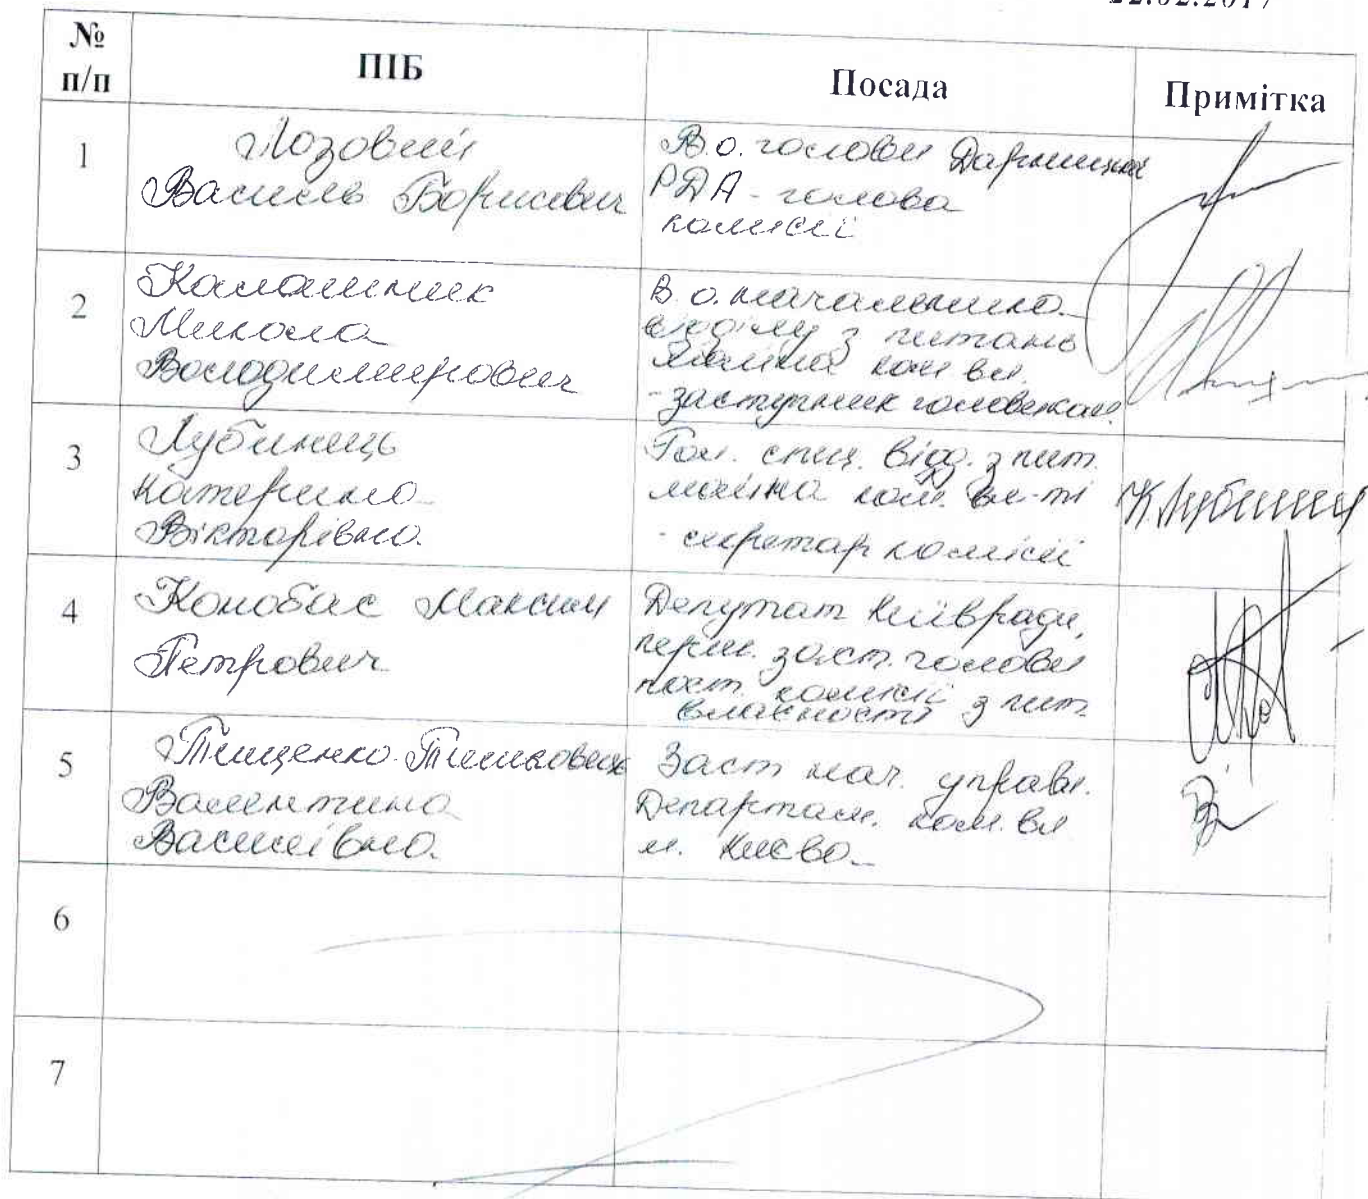 22.02.2017
№ п/п ПІБ Посада Примітка
1
Лозовий
Василь Борисович
В.о. голови Дарницької
РДА - голова
комісії
2
Калашник
Микола
Володимирович
В.о. начальника
відділу з питань
майна ком вл.
- заступник голови ком.
3
Лубинець
Катерина
Вікторівна
Гол. спец. відд. з пит.
майна ком. вл-ті
- секретар комісії
К.Лубинец
4
Конобас Максим
Петрович
Депутат Київради,
перш. заст. голови
пост. комісії з пит.
власності
5
Тищенко-Тишковець
Валентина
Василівна
Заст нач. управл.
Департам. ком. вл
м. Києва
6
7